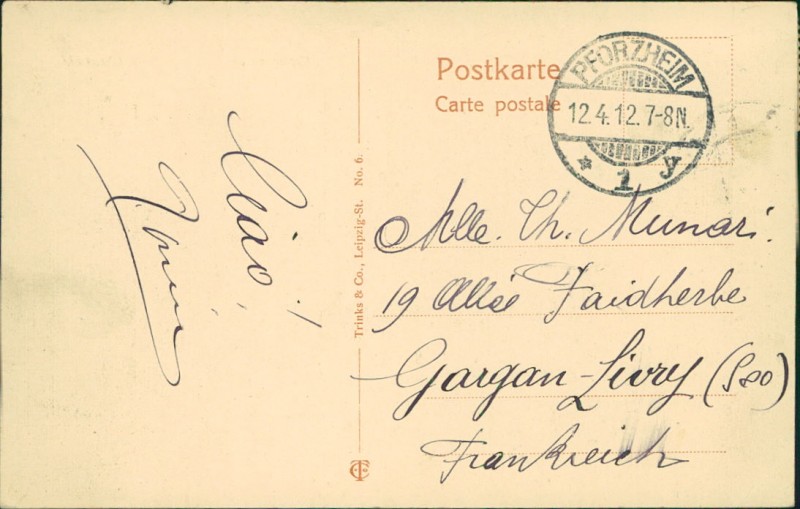 Postkarte
Carte postale
PFORZHEIM
12.4.12.7-8N.
* 1 y
Ciao!
Trinks & Co., Leipzig-St. No. 6.
Mlle. Th. Munari.
19 Allée Faidherbe
Gargan-Livry (S&O)
Frankreich